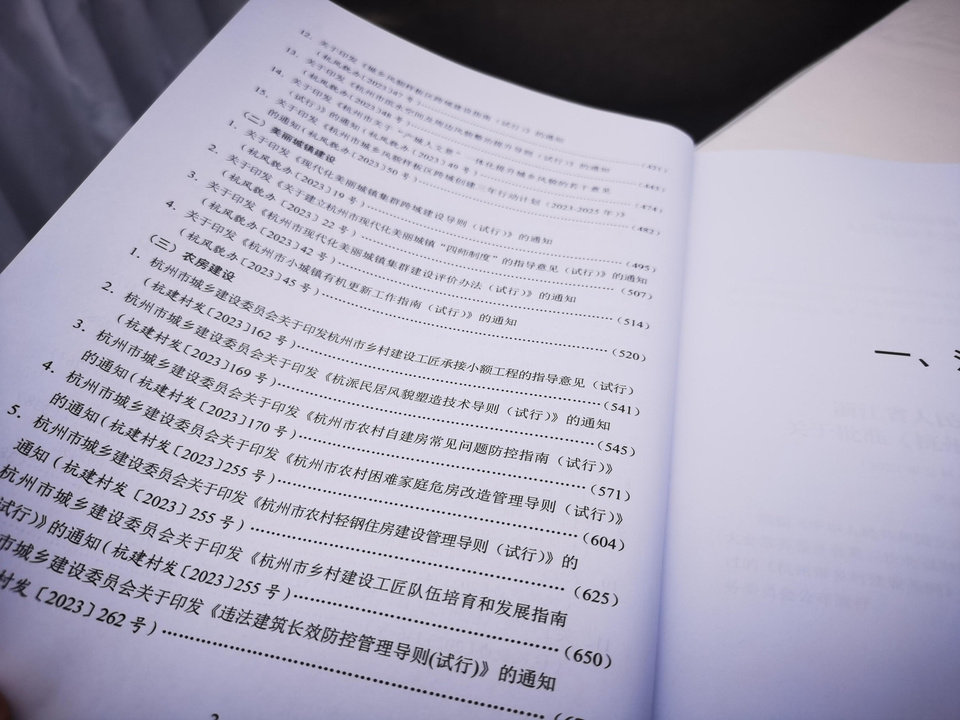 12. 关于印发《城乡风貌样板区跨域建设指南(试行)》的通知
(杭风貌办[2023]37号)
13. 关于印发《杭州市滨水空间及周边风貌整治提升导则(试行)》的通知
(杭风貌办[2023]46号)
14. 关于印发《杭州市关于
(试行)》的通知(杭风貌办[2023]49号)
15. 关于印发《杭州市城乡风貌样板区跨域创建三年行动计划(2023-2025年)》
的通知(杭风貌办[2023]50号)
(431)
(445)
(474)
(482)
(二) 美丽城镇建设
1. 关于印发《现代化美丽城镇集群跨域建设导则(试行)》的通知
(杭风貌办[2023]19号)……(495)
2. 关于印发《关于建立杭州市现代化美丽城镇“四师制度”的指导意见(试行)》的通知
(杭风貌办[2023]22号)……(507)
3. 关于印发《杭州市现代化美丽城镇集群建设评价办法(试行)》的通知
(杭风貌办[2023]42号)……(514)
4. 关于印发《杭州市小城镇有机更新工作指南(试行)》的通知
(杭风貌办[2023]45号)……(520)
(三) 农房建设
1. 杭州市城乡建设委员会关于印发杭州市乡村建设工匠承接小额工程的指导意见(试行)
(杭建村发[2023]162号)……(541)
2. 杭州市城乡建设委员会关于印发《杭派民居风貌塑造技术导则(试行)》的通知
(杭建村发[2023]169号)……(545)
3. 杭州市城乡建设委员会关于印发《杭州市农村自建房常见问题防控指南(试行)》
的通知(杭建村发[2023]170号)……(571)
4. 杭州市城乡建设委员会关于印发《杭州市农村困难家庭危房改造管理导则(试行)》
的通知(杭建村发[2023]255号)……(604)
5. 杭州市城乡建设委员会关于印发《杭州市农村轻钢住房建设管理导则(试行)》的
通知(杭建村发[2023]255号)……(625)
杭州市城乡建设委员会关于印发《杭州市乡村建设工匠队伍培育和发展指南
试行)》的通知(杭建村发[2023]255号)……(650)
市城乡建设委员会关于印发《违法建筑长效防控管理导则(试行)》的通知
村发[2023]262号)……
一、